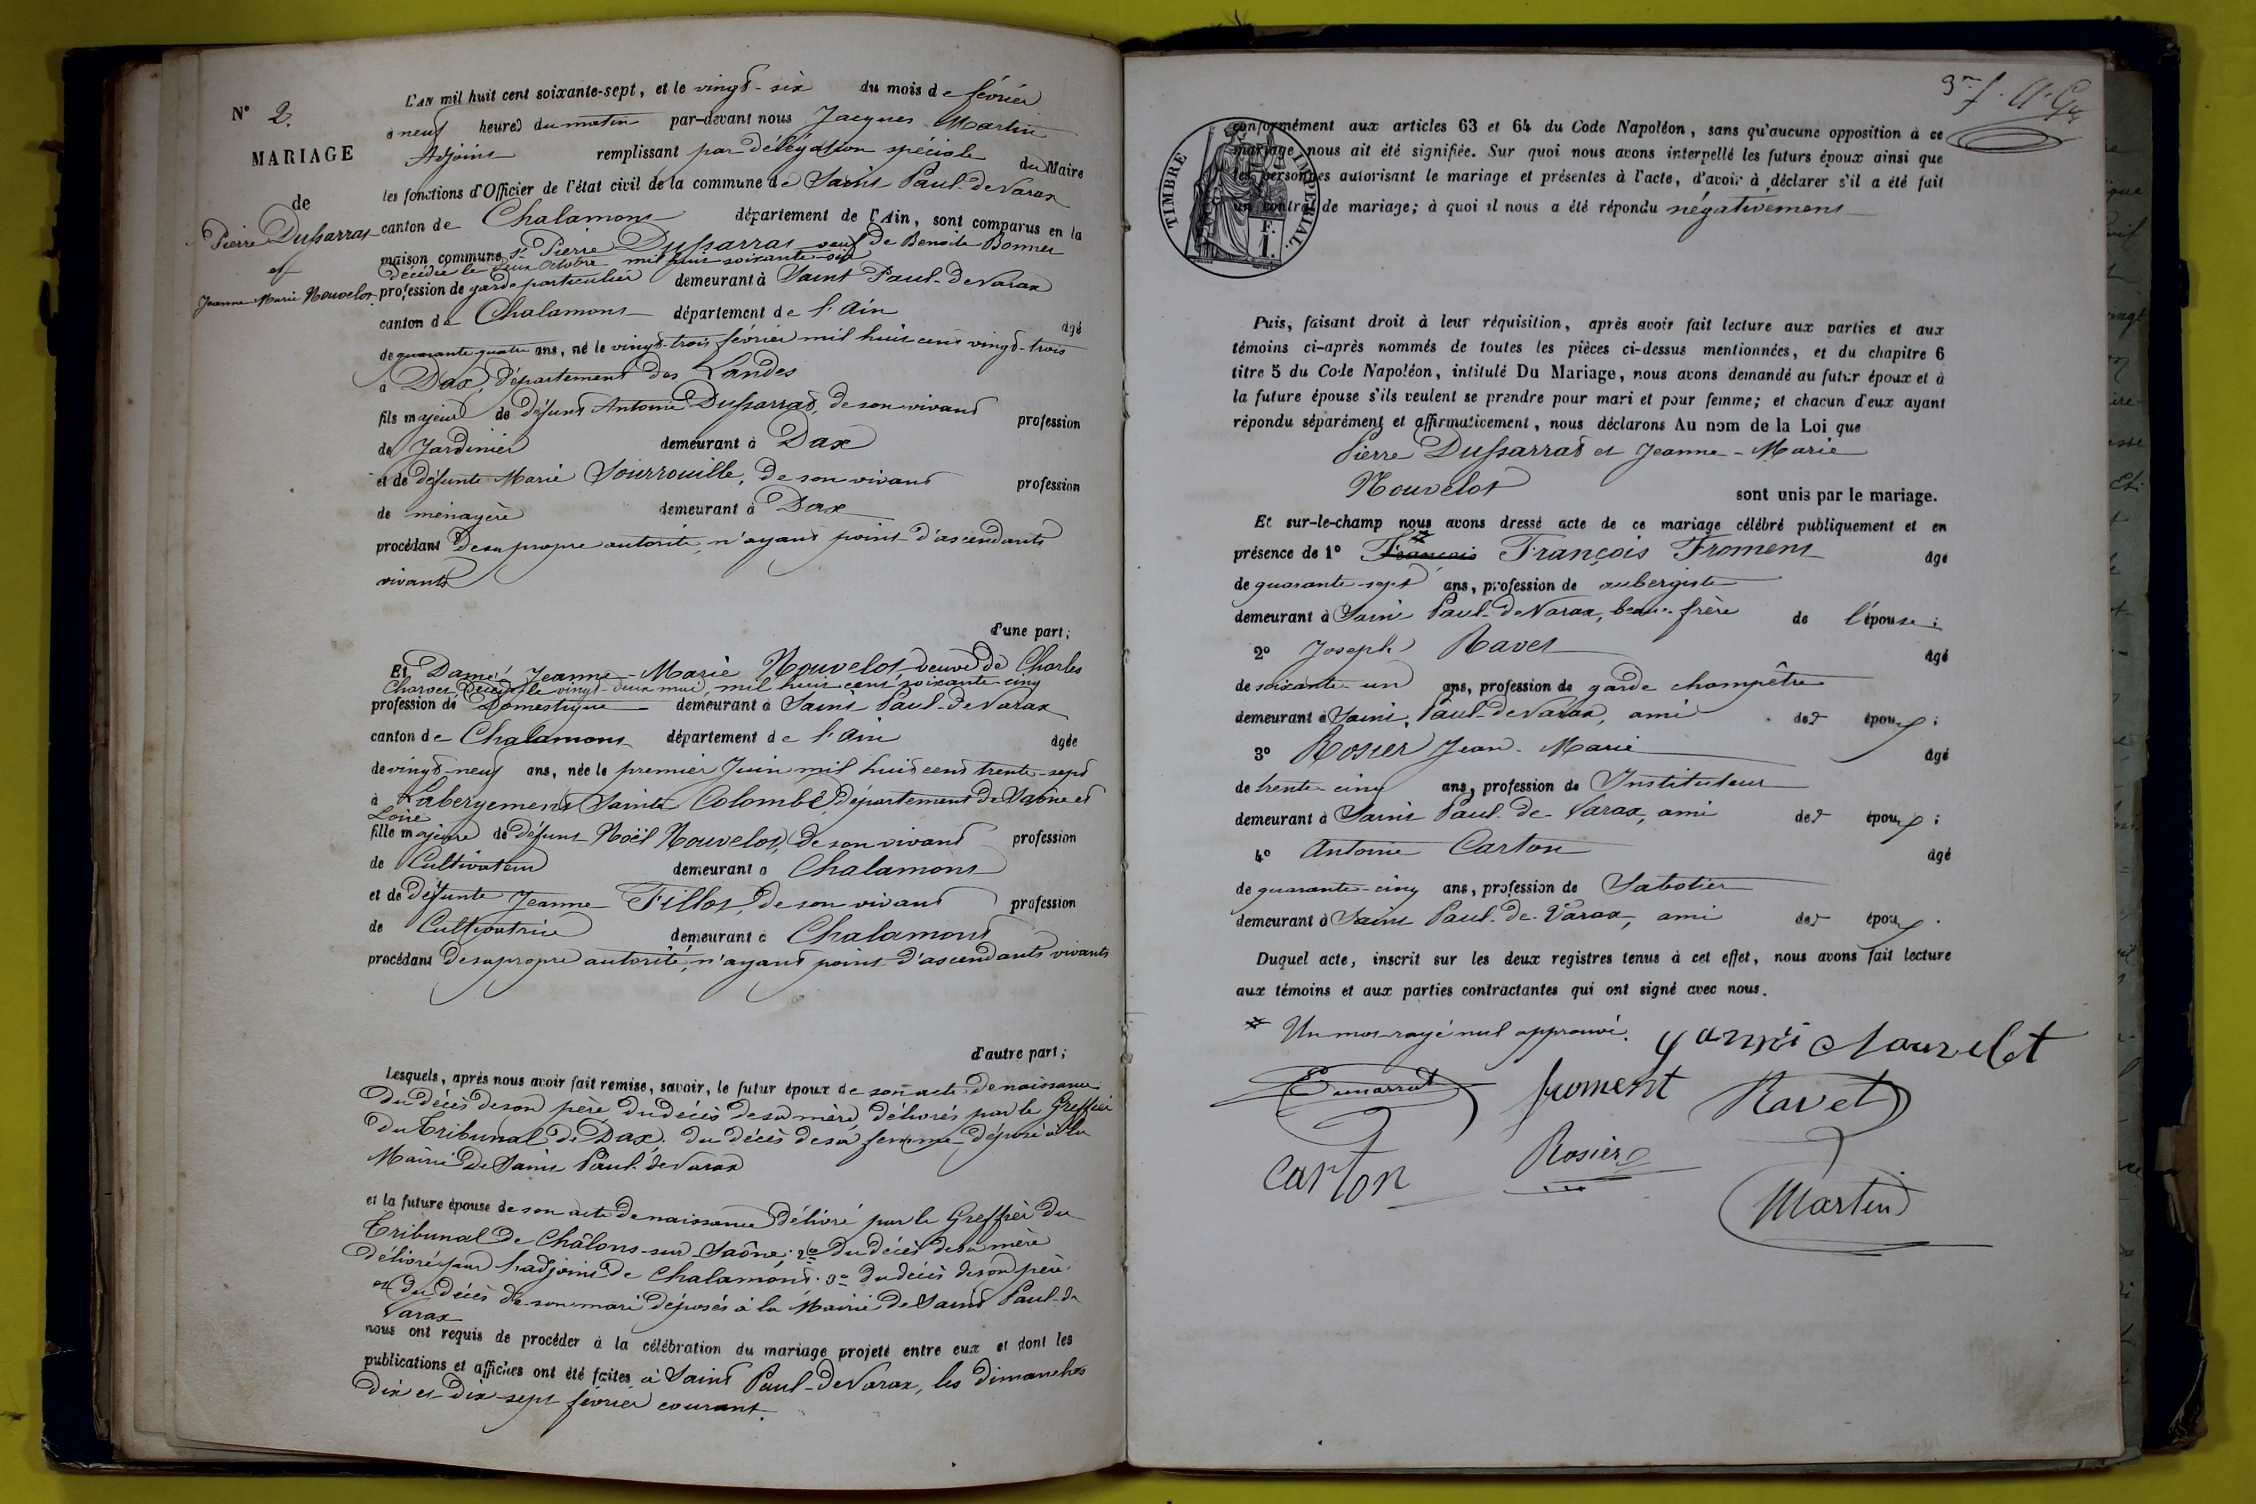 N° 2.
MARIAGE
de
Pierre Dussarrat
et
Jeanne Marie Nouvelot
L'AN mil huit cent soixante-sept, et le vingt-six du mois de février
à neuf heures du matin par-devant nous Jacques Martin
Adjoint remplissant par délégation spéciale du Maire
les fonctions d'Officier de l'état civil de la commune de Saint Paul-de Varax
canton de Chalamont département de l'Ain, sont comparus en la
maison commune Sr Pierre Dussarrat veuf de Benoite Bonnet
décédée le deux Octobre mil huit soixante-six
profession de garde particulier demeurant à Saint Paul-de Varax
canton de Chalamont département de l'Ain âgé
de quarante quatre ans, né le vingt-trois février mil huit cent vingt-trois
à Dax, département des Landes
fils majeur de défunt Antoine Dussarrat, de son vivant profession
de Jardinier demeurant à Dax
et de défunte Marie Sourrouille, de son vivant profession
de ménagère demeurant à Dax
procédant de sa propre autorité, n'ayant point d'ascendants
vivants
d'une part;
Et Dame Jeanne-Marie Nouvelot, veuve de Charles
Charvet, décédé le vingt-deux mai, mil huit cent soixante-cinq
profession de Domestique demeurant à Saint Paul-de Varax
canton de Chalamont département de l'Ain âgée
de vingt-neuf ans, née le premier Juin mil huit cent trente-sept
à Labergement Sainte Colombe, département de Saône et
Loire
fille majeure de défunt Noël Nouvelot, de son vivant profession
de Cultivateur demeurant à Chalamont
et de défunte Jeanne Tillot, de son vivant profession
de Cultivatrice demeurant à Chalamont
procédant de sa propre autorité, n'ayant point d'ascendants vivants
d'autre part;
Lesquels, après nous avoir fait remise, savoir, le futur époux de son acte de naissance
du décès de son père du décès de sa mère, délivrés par le Greffier
du Tribunal de Dax, du décès de sa femme, déposé à la
Mairie de Saint Paul-de Varax
et la future épouse de son acte de naissance délivré par le Greffier du
Tribunal de Châlons-sur-Saône; 2° du décès de sa mère
délivré par l'adjoint de Chalamont. 3° du décès de son père
et du décès de son mari déposés à la Mairie de Saint Paul-de
Varax
nous ont requis de procéder à la célébration du mariage projeté entre eux et dont les
publications et affiches ont été faites à Saint Paul-de Varax, les dimanches
dix et dix-sept février courant.
TIMBRE IMPÉRIAL.
F.
1.
conformément aux articles 63 et 64 du Code Napoléon, sans qu'aucune opposition à ce
mariage nous ait été signifiée. Sur quoi nous avons interpellé les futurs époux ainsi que
les personnes autorisant le mariage et présentes à l'acte, d'avoir à déclarer s'il a été fait
un contrat de mariage; à quoi il nous a été répondu négativement
Puis, faisant droit à leur réquisition, après avoir fait lecture aux parties et aux
témoins ci-après nommés de toutes les pièces ci-dessus mentionnées, et du chapitre 6
titre 5 du Code Napoléon, intitulé Du Mariage, nous avons demandé au futur époux et à
la future épouse s'ils veulent se prendre pour mari et pour femme; et chacun d'eux ayant
répondu séparément et affirmativement, nous déclarons Au nom de la Loi que
Pierre Dussarrat et Jeanne-Marie
Nouvelot sont unis par le mariage.
Et sur-le-champ nous avons dressé acte de ce mariage célébré publiquement et en
présence de 1° François François Froment âgé
de quarante-sept ans, profession de aubergiste
demeurant à Saint Paul-de Varax, beau-frère de l'épouse;
2° Joseph Ravet âgé
de soixante-un ans, profession de garde champêtre
demeurant à Saint Paul-de Varax, ami des époux;
3° Rosier Jean-Marie âgé
de trente-cinq ans, profession de Instituteur
demeurant à Saint Paul-de-Varax, ami des époux;
4° Antoine Carton âgé
de quarante-cinq ans, profession de Sabotier
demeurant à Saint Paul-de-Varax, ami des époux.
Duquel acte, inscrit sur les deux registres tenus à cet effet, nous avons fait lecture
aux témoins et aux parties contractantes qui ont signé avec nous.
Un mot rayé nul approuvé.
Nouvelet
froment Ravet
Carton Rosier
Martin